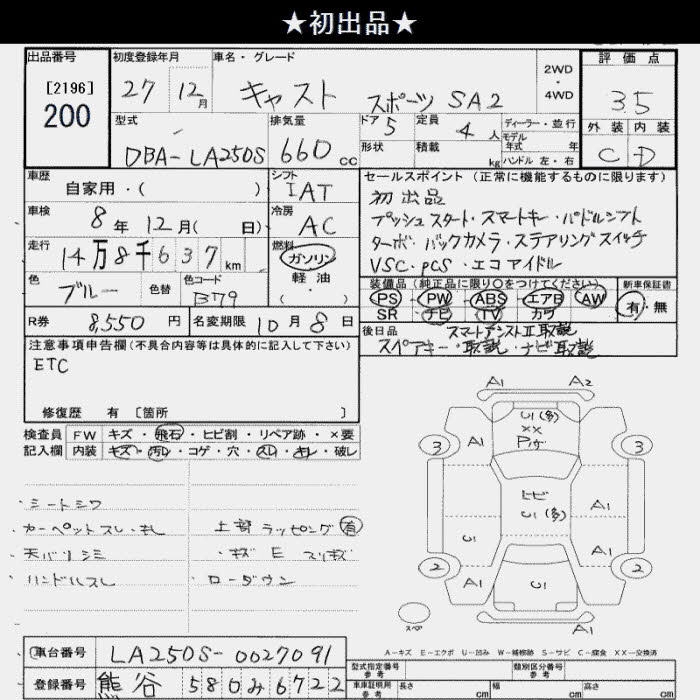 ★初出品★
出品番号
[2196]
200
初度登録年月
27 12月
車名・グレード
キャスト スポーツ SA2
2WD
・
4WD
評価点
3.5
外装 内装
C D
型式
DBA-LA250S
排気量
660 cc
ドア 5
形状
定員 4人
積載 kg
ディーラー・並行
モデル年式 年
ハンドル 左・右
車歴
自家用・( )
シフト
IAT
車検
8年12月( 日)
冷房
AC
走行
14万8千637km
燃料
ガソリン
軽油
・( )
色
ブルー
色替
色コード
B79
R券 8,550円
名変期限 10月8日
セールスポイント(正常に機能するものに限ります)
初出品
プッシュスタート・スマートキー・パドルシフト
ターボ・バックカメラ・ステアリングスイッチ
VSC・PCS・エコアイドル
装備品(純正品に限り○をつけてください)
PS PW ABS エアB AW
SR ナビ TV カワ
新車保証書
有・無
後日品 スマートアシストⅡ取説
スペアキー・取説・ナビ取説
注意事項申告欄(不具合内容等は具体的に記入して下さい)
ETC
修復歴 有 [箇所 ]
検査員 FW キズ・飛石・ヒビ割・リペア跡・×要
記入欄 内装 キズ・汚レ・コゲ・穴・スレ・キレ・破レ
・シートシワ
カーペットスレ・キレ
天バリシミ
ハンドルスレ
上部ラッピング有
・キズ E スリキズ
ローダウン
A1 A2
U1(多)
××
Pサ
3 A1 A1 3
ヒビ
U1(多)
A1
U1
A1
2 A1 U1 A1 2
スペア
A-キズ E-エクボ U-凹み W-補修跡 S-サビ C-腐食 XX-交換済
車台番号 LA250S-0027091
登録番号 熊谷 580 み 6722
型式指定番号 参考
類別区分番号 参考
車庫証明用 参考 長さ cm 幅 cm 高さ cm